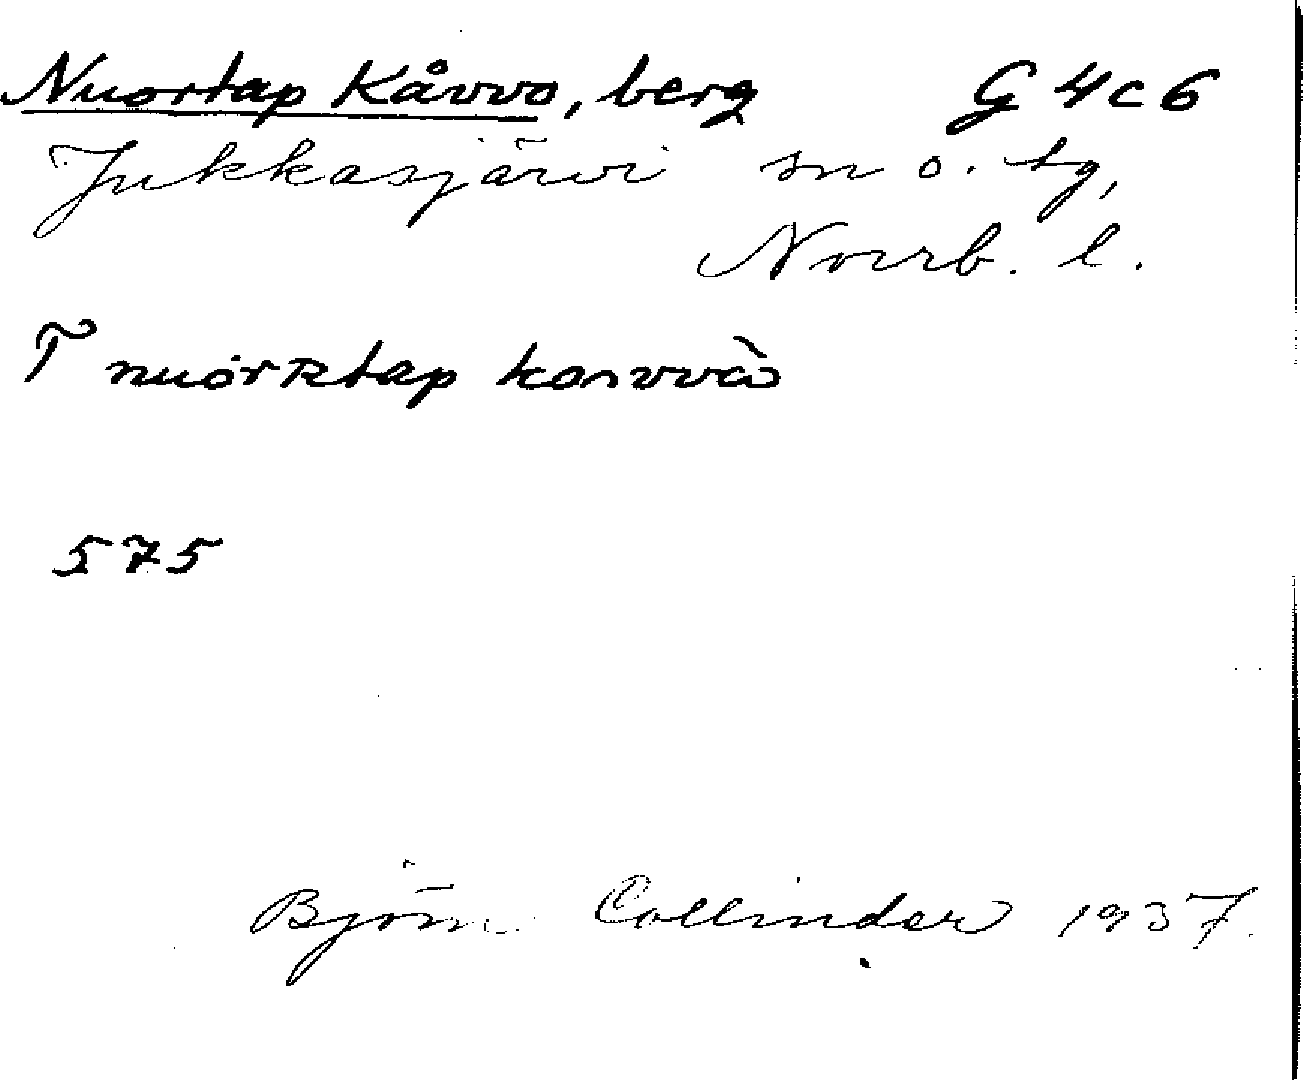 Nuortap Kåvvo, berg G 4c6
Jukkasjärvi sn o. tg,
Norrb. l.
T
575
Björn Collinder 1937.